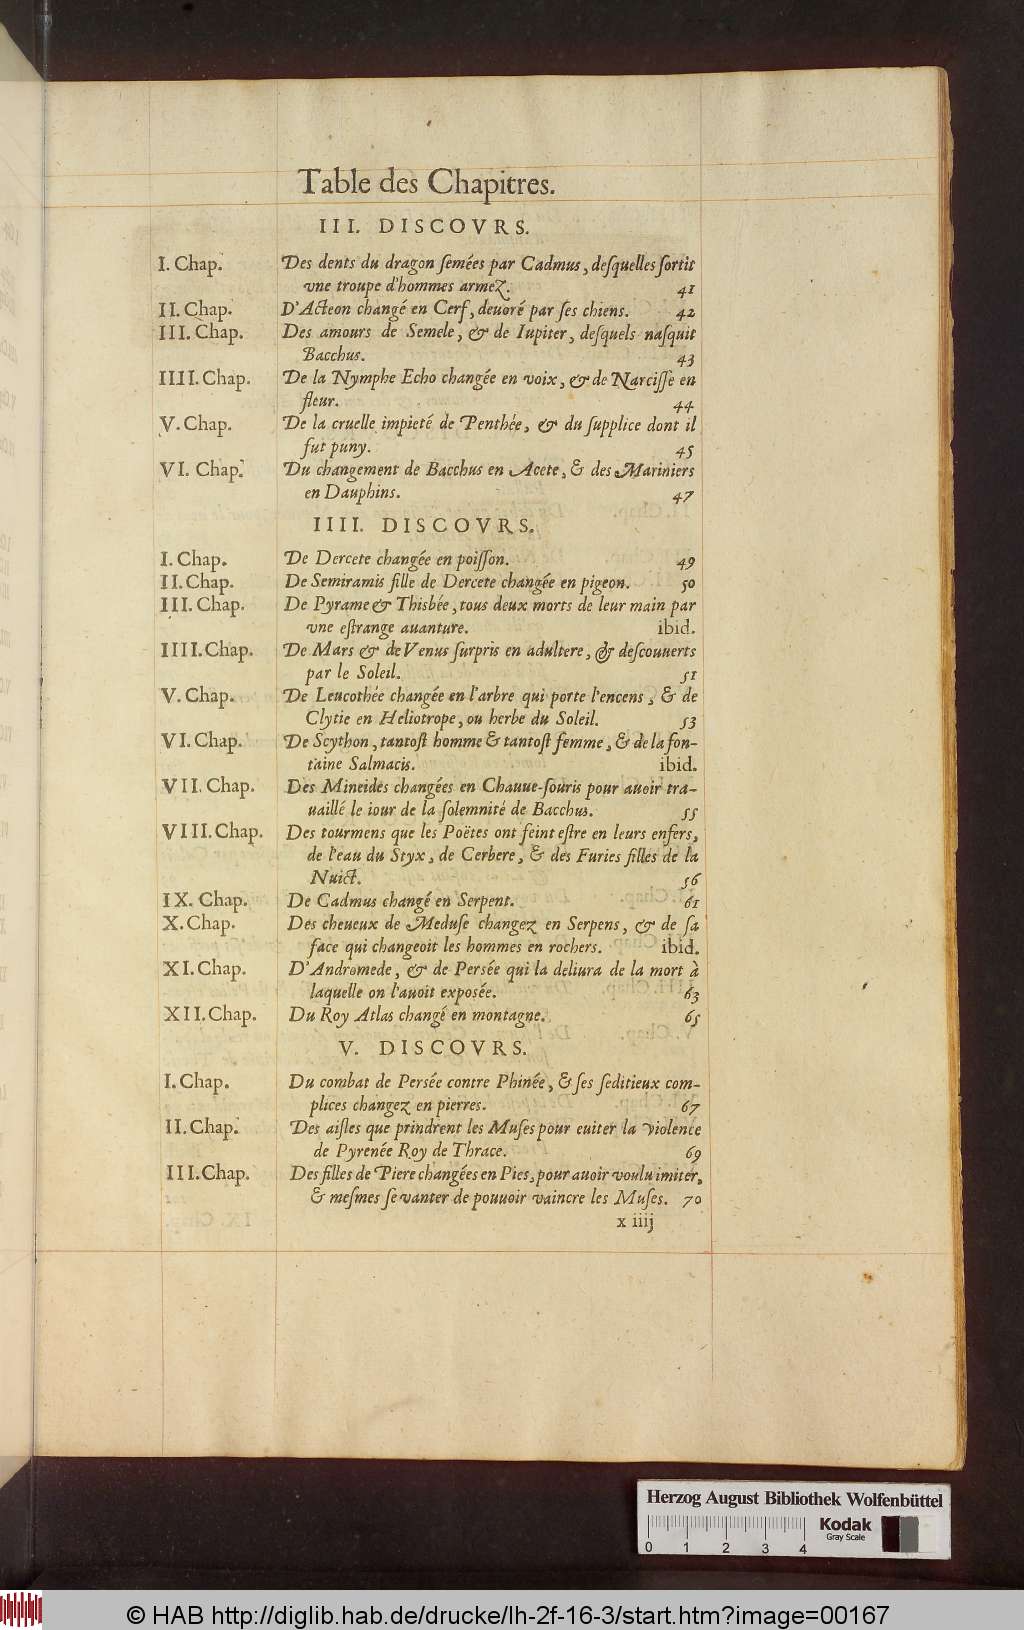 Table des Chapitres.
III. DISCOVRS.
I. Chap. Des dents du dragon ſemées par Cadmus, deſquelles ſortit
vne troupe d'hommes armeZ. 41
II. Chap. D'Acteon changé en Cerf, deuoré par ſes chiens. 42
III. Chap. Des amours de Semele, & de Iupiter, deſquels naſquit
Bacchus. 43
IIII. Chap. De la Nymphe Echo changée en voix, & de Narciſſe en
fleur. 44
V. Chap. De la cruelle impieté de Penthée, & du ſupplice dont il
fut puny. 45
VI. Chap. Du changement de Bacchus en Acete, & des Mariniers
en Dauphins. 47
IIII. DISCOVRS.
I. Chap. De Dercete changée en poiſſon. 49
II. Chap. De Semiramis fille de Dercete changée en pigeon. 50
III. Chap. De Pyrame & Thisbée, tous deux morts de leur main par
vne eſtrange auanture. ibid.
IIII. Chap. De Mars & de Venus ſurpris en adultere, & deſcouuerts
par le Soleil. 51
V. Chap. De Leucothée changée en l'arbre qui porte l'encens, & de
Clytie en Heliotrope, ou herbe du Soleil. 53
VI. Chap. De Scython, tantoſt homme & tantoſt femme, & de la fon-
taine Salmacis. ibid.
VII. Chap. Des Mineides changées en Chauue-ſouris pour auoir tra-
uaillé le iour de la ſolemnité de Bacchus. 55
VIII. Chap. Des tourmens que les Poëtes ont feint eſtre en leurs enfers,
de l'eau du Styx, de Cerbere, & des Furies filles de la
Nuict. 56
IX. Chap. De Cadmus changé en Serpent. 61
X. Chap. Des cheueux de Meduſe changez en Serpens, & de ſa
face qui changeoit les hommes en rochers. ibid.
XI. Chap. D'Andromede, & de Perſée qui la deliura de la mort à
laquelle on l'auoit expoſée. 63
XII. Chap. Du Roy Atlas changé en montagne. 65
V. DISCOVRS.
I. Chap. Du combat de Perſée contre Phinée, & ſes ſeditieux com-
plices changez en pierres. 67
II. Chap. Des aiſles que prindrent les Muſes pour euiter la violence
de Pyrenée Roy de Thrace. 69
III. Chap. Des filles de Piere changées en Pies, pour auoir voulu imiter,
& meſmes ſe vanter de pouuoir vaincre les Muſes. 70
x iiij
Herzog August Bibliothek Wolfenbüttel
0 1 2 3 4
Kodak
Gray Scale
© HAB http://diglib.hab.de/drucke/lh-2f-16-3/start.htm?image=00167